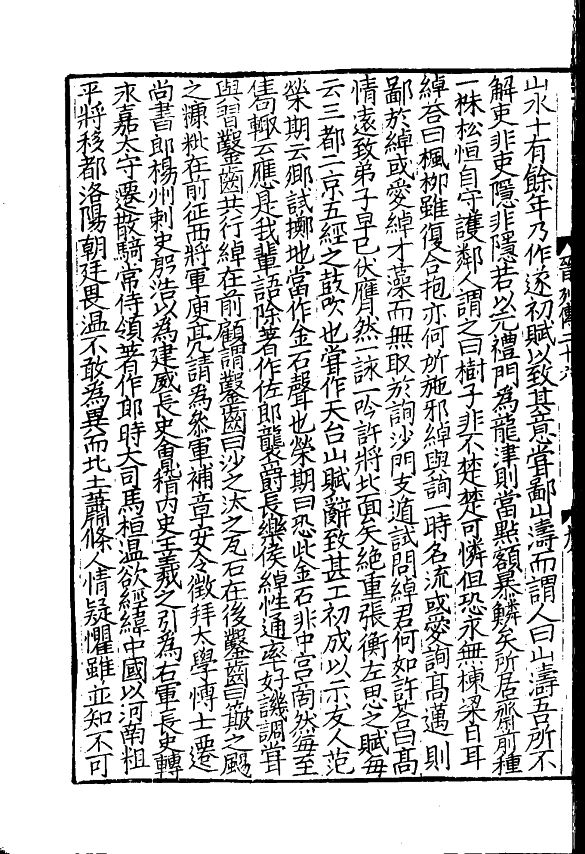 山水十有餘年乃作遂初賦以致其意嘗鄙山濤而謂人曰山濤吾所不
解吏非吏隱非隱若以元禮門為龍津則當點額暴鱗矣所居齋前種
一株松恒自守護鄰人謂之曰樹子非不楚楚可憐但恐永無棟梁日耳
綽荅曰楓柳雖復合抱亦何所施邪綽與詢一時名流或愛詢高邁則
鄙於綽或愛綽才藻而無取於詢沙門支遁試問綽君何如許荅曰高
情遠致弟子早已伏膺然一詠一吟許將北面矣絶重張衡左思之賦每
云三都二京五經之鼓吹也嘗作天台山賦辭致甚工初成以示友人范
榮期云卿試擲地當作金石聲也榮期曰恐此金石非中宮商然每至
佳句輒云應是我輩語除著作佐郎襲爵長樂侯綽性通率好譏調嘗
與習鑿齒共行綽在前顧謂鑿齒曰沙之汰之瓦石在後鑿齒曰簸之颺
之糠粃在前征西將軍庾亮請為參軍補章安令徵拜太學博士遷
尚書郎楊州刺史殷浩以為建威長史會稽内史王羲之引為右軍長史轉
永嘉太守遷散騎常侍領著作郎時大司馬桓温欲經緯中國以河南粗
平將移都洛陽朝廷畏温不敢為異而北土蕭條人情疑懼雖並知不可
晉列傳二十六